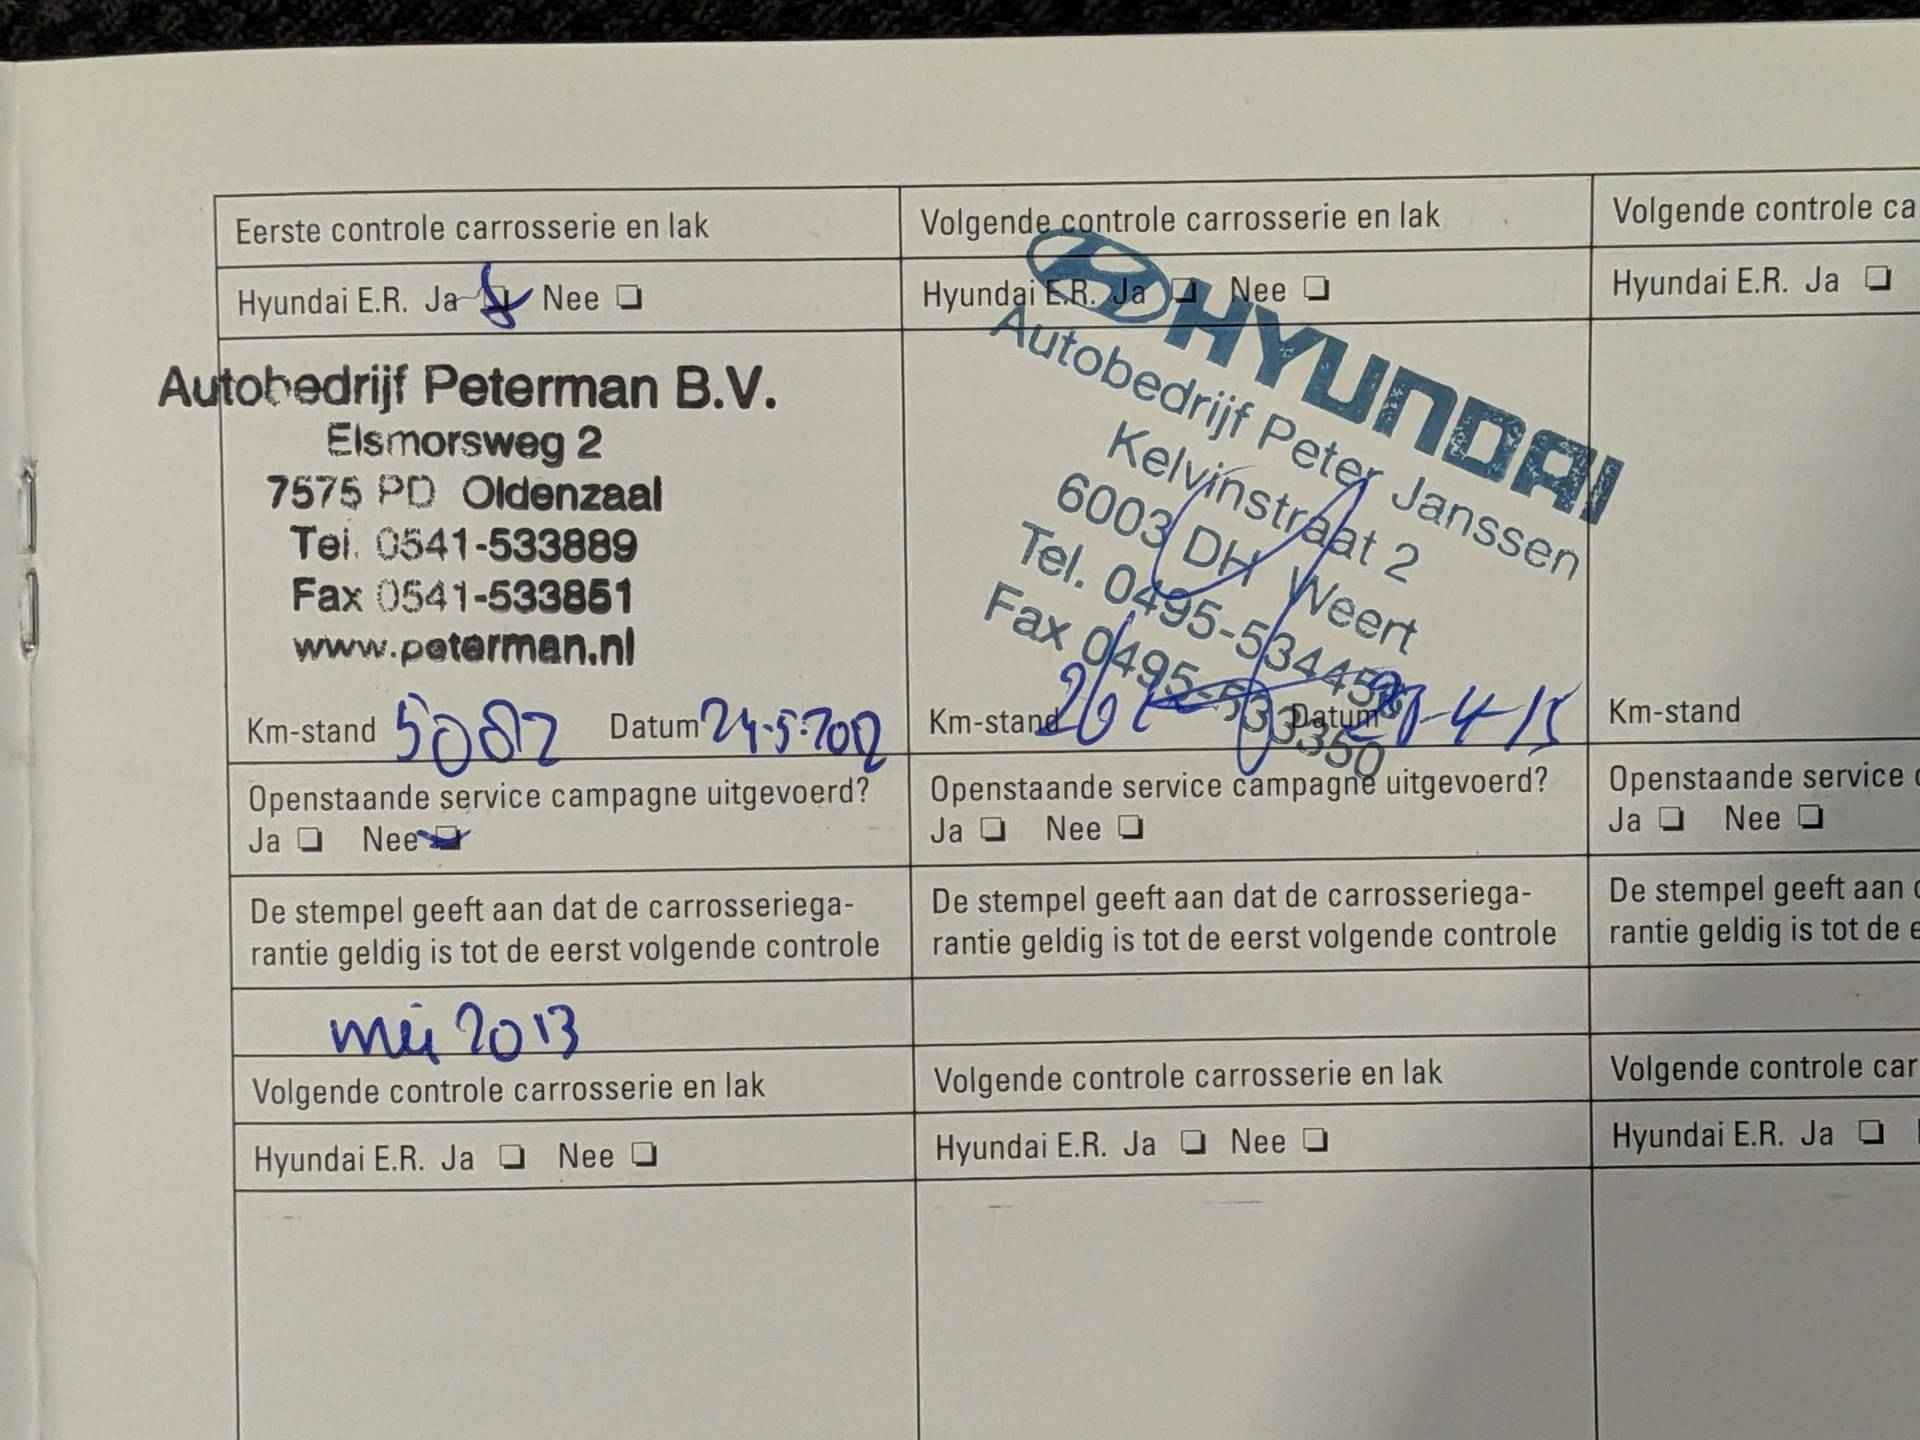 Eerste controle carrosserie en lak
Hyundai E.R. Ja Nee
Autobedrijf Peterman B.V.
Elsmorsweg 2
7575 PD Oldenzaal
Tel. 0541-533889
Fax 0541-533851
www.peterman.nl
Km-stand 5082 Datum 24-5-2012
Openstaande service campagne uitgevoerd?
Ja Nee
De stempel geeft aan dat de carrosseriega-
rantie geldig is tot de eerst volgende controle
mei 2013
Volgende controle carrosserie en lak
Hyundai E.R. Ja Nee
Volgende controle carrosserie en lak
Hyundai E.R. Ja Nee
HYUNDAI
Autobedrijf Peter Janssen
Kelvinstraat 2
6003 DH Weert
Tel. 0495-534458
Fax 0495-533350
Km-stand Datum
Openstaande service campagne uitgevoerd?
Ja Nee
De stempel geeft aan dat de carrosseriega-
rantie geldig is tot de eerst volgende controle
Volgende controle carrosserie en lak
Hyundai E.R. Ja Nee
Volgende controle ca
Hyundai E.R. Ja
Km-stand
Openstaande service
Ja Nee
De stempel geeft aan
rantie geldig is tot de e
Volgende controle car
Hyundai E.R. Ja